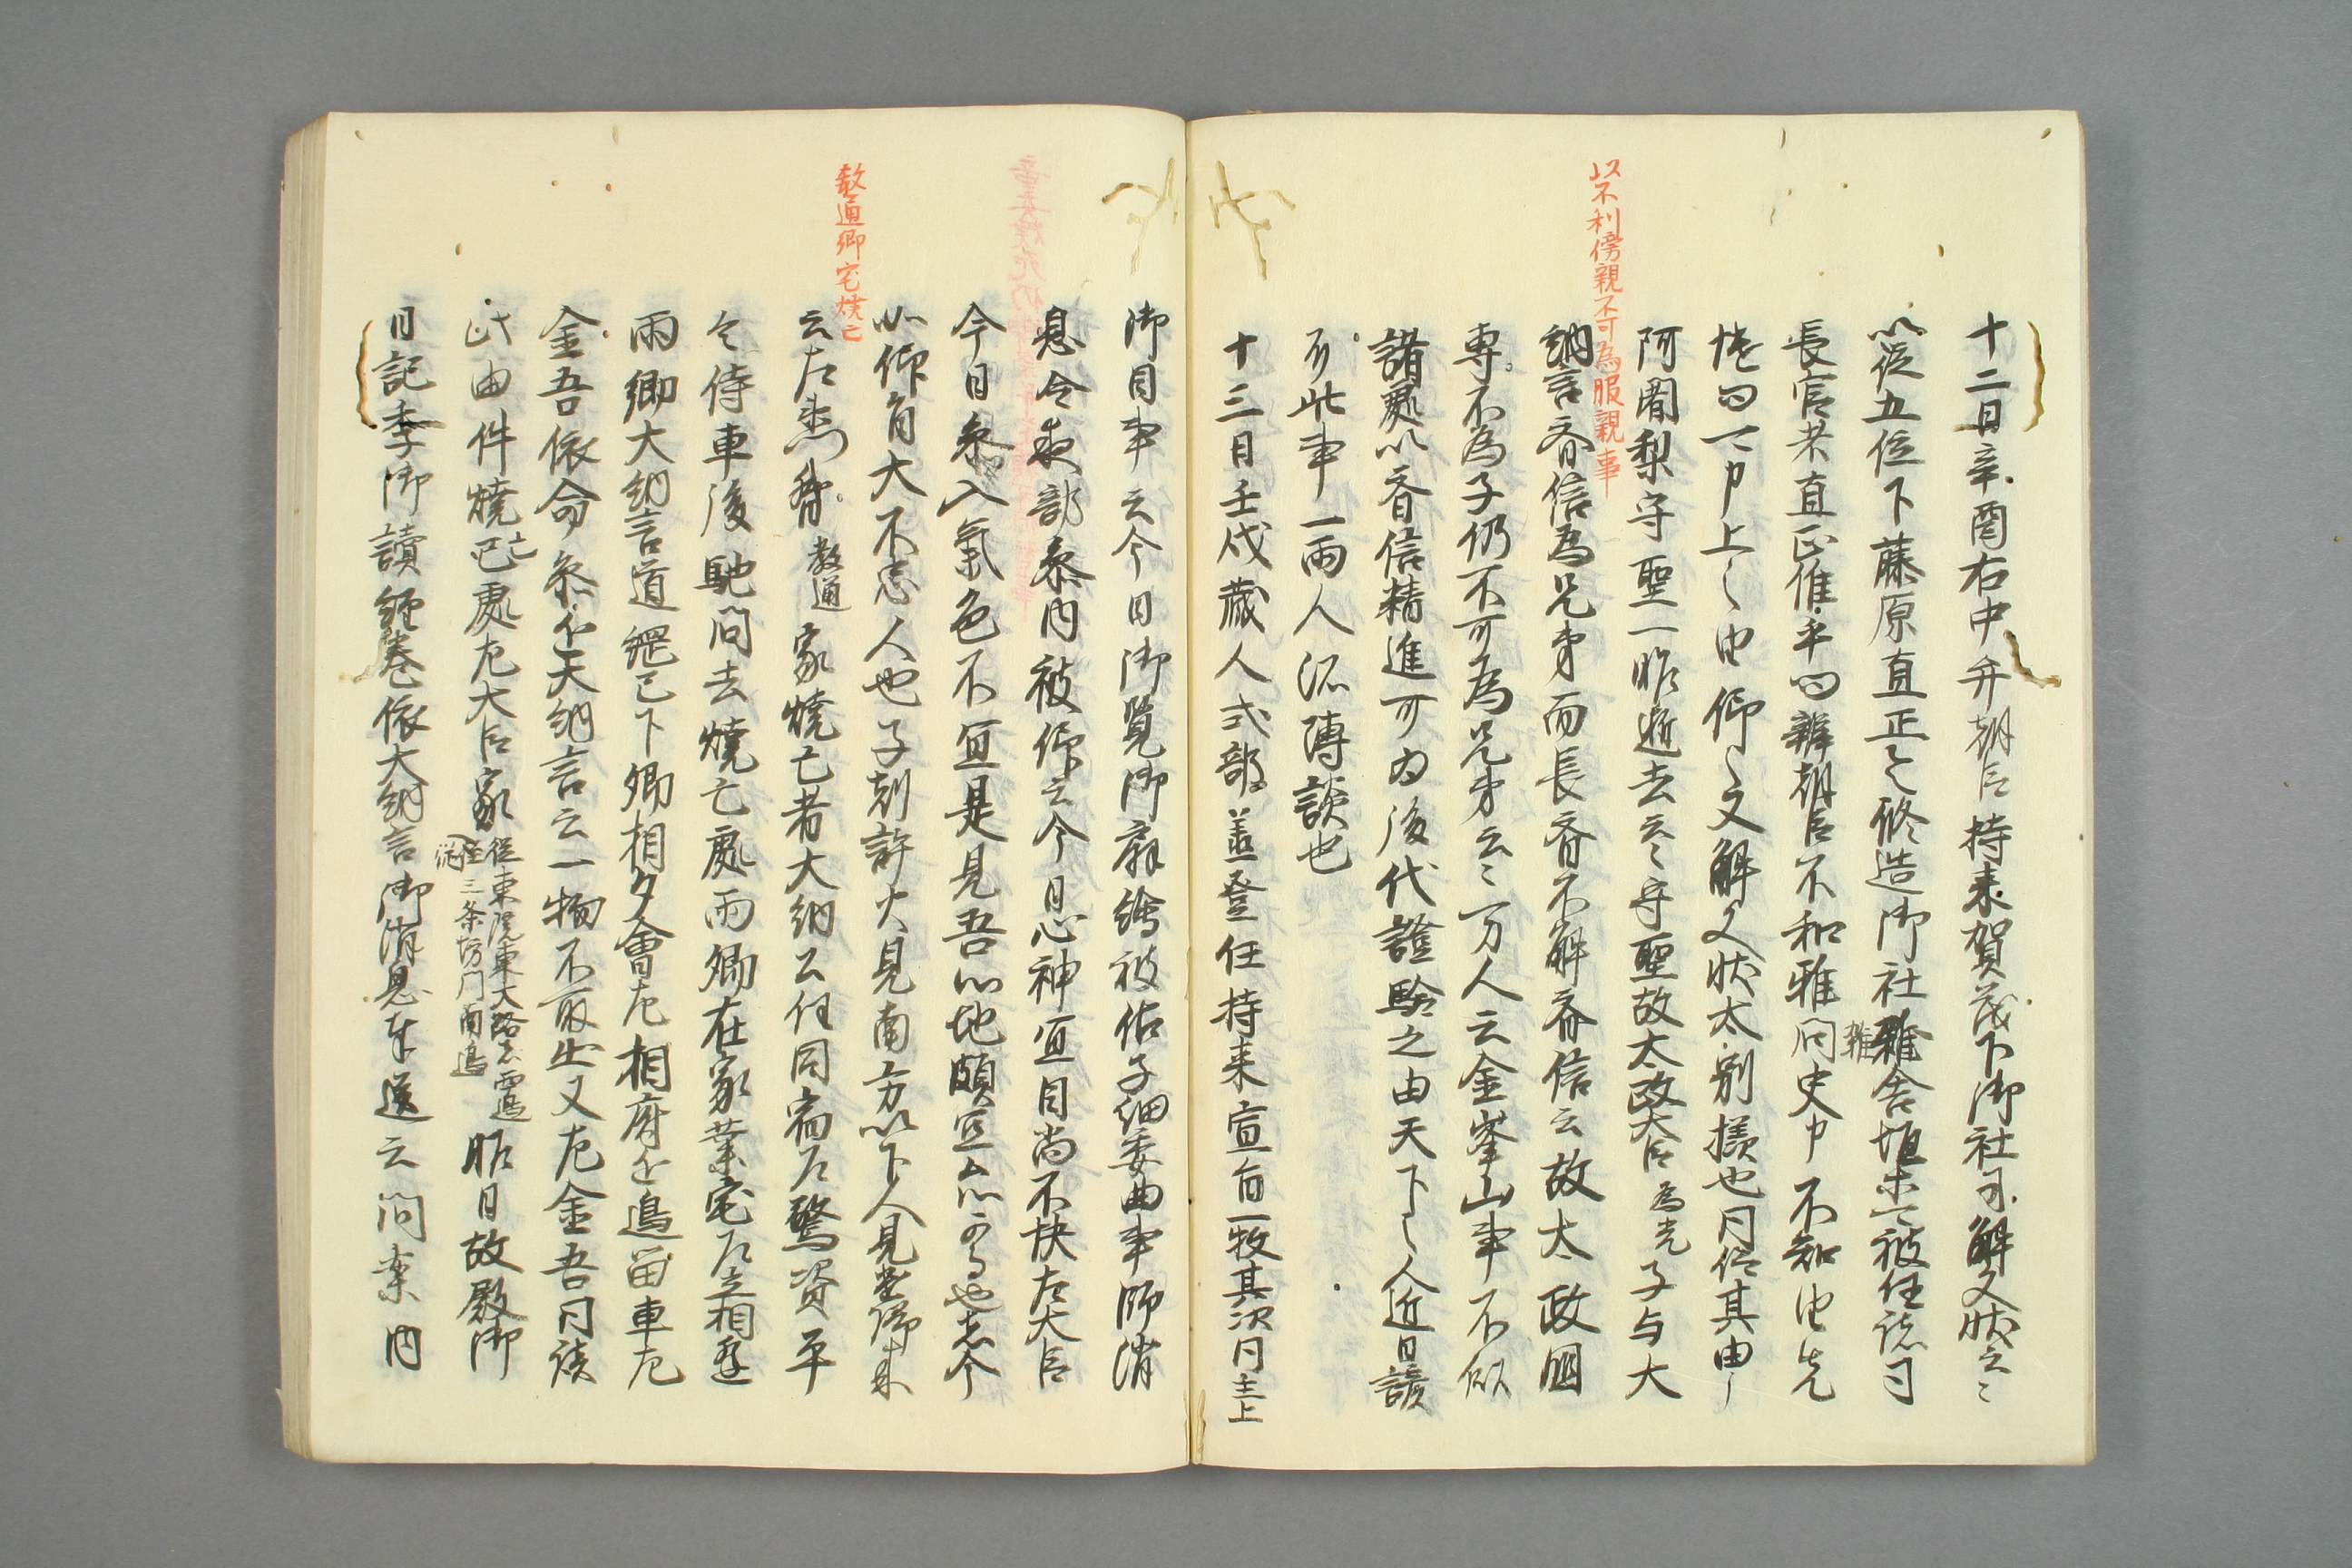 以不利傍親不可為服親事
十二日辛酉右中弁朝臣持来賀茂下御社司解文状云々
以従五位下藤原直正之修造御社雑舎垣等被任諸司
雑
長官者直正作手
朝臣不和雅問史申不知由先
上之由仰之又解文状太別様也同伝其由
阿闍梨守聖一昨逝去云々守聖故太政大臣為光子与大
納言斉信為兄弟而長斉不解斉信云故太政国
専不為子仍不可為兄弟云々万人云金峯山事不似
諸処以斉信精進可為後代證験之由天下之人近日談
所此事一両人流傳談也
十三日壬戌蔵人式部丞登任持来宣旨一枚其次同主上
教通卿宅焼亡
御目事云今日御覧御扇絵被作子細委曲事師消
息令式部参内被仰云今日心神宜目尚不快左大臣
今日参入氣色不宜是見吾心地頗宜
也者今
以仰旨大不忠人也子剋許火見南方以下人見遣帰来
云左
教通
家焼亡者大納公任同宿乃驚資平
令侍車後馳問去焼亡処両卿在家業宅乃立相逢
両卿大納言道綱已下卿相多會左相府
車左
金吾依命参
大納言云一物不取出又左金吾同談
此由件焼亡処左大臣家
従東院東大路
三条坊門南
昨日故殿御
日記季御讀経巻依大納言御消息奉送云問案内